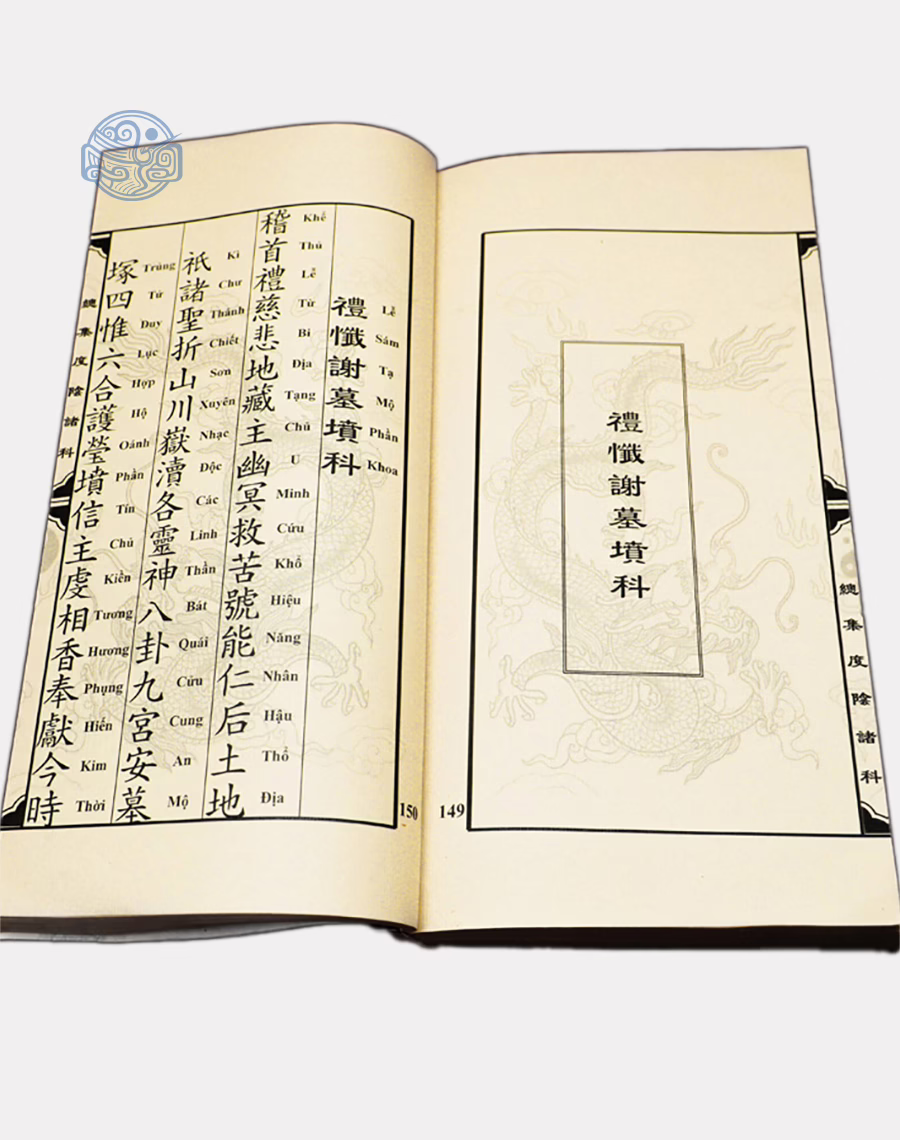 總集度陰諸科
禮懺謝墓墳科
149
禮懺謝墓墳科
Lễ Sám Tạ Mộ Phần Khoa
稽首禮慈悲地藏主幽冥救苦號能仁后土地
Khể Thủ Lễ Từ Bi Địa Tạng Chủ U Minh Cứu Khổ Hiệu Năng Nhân Hậu Thổ Địa
祇諸聖折山川嶽瀆各靈神八卦九宮安墓
Kì Chư Thánh Chiết Sơn Xuyên Nhạc Độc Các Linh Thần Bát Quái Cửu Cung An Mộ
塚四惟六合護瑩墳信主虔相香奉獻今時
Trủng Tứ Duy Lục Hợp Hộ Oánh Phần Tín Chủ Kiền Tương Hương Phụng Hiến Kim Thời
總集度陰諸科
150